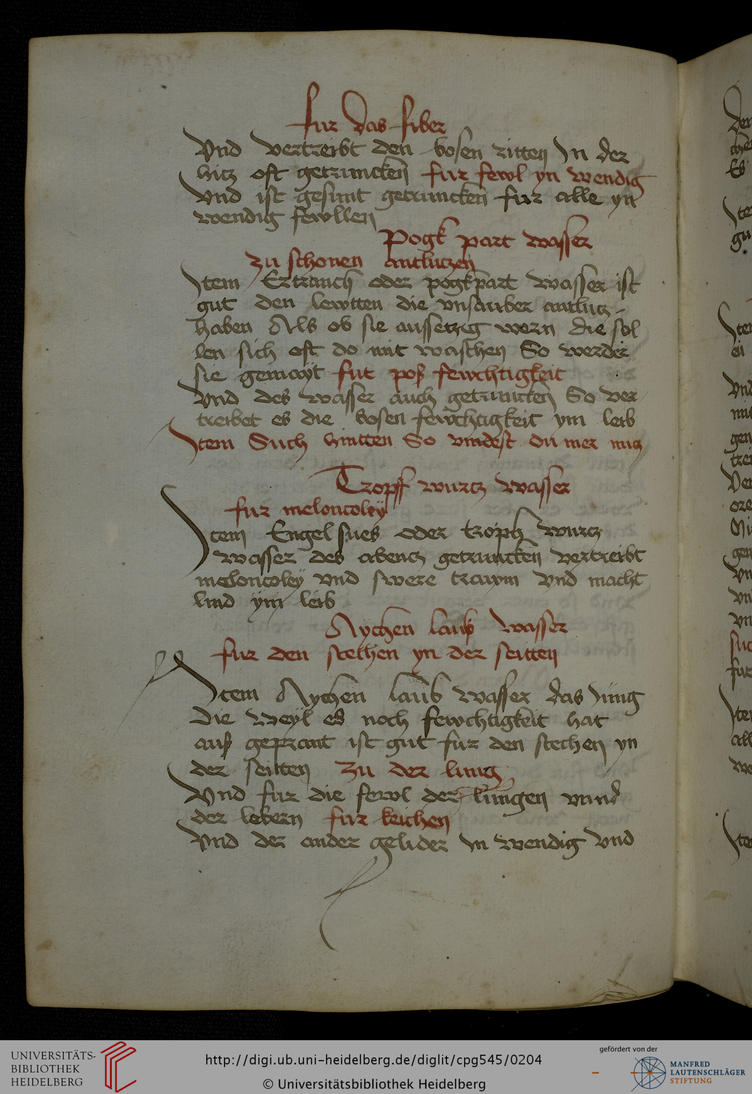 fur das fiber
Vnd vertreibt den bosen ritten In der
hitz oft getruncken fur fewl yn wendig
Vnd ist gesunt getruncken fur alle yn
wendig fewllen
Pogk part wasser
zu schonen antlutzen
Item Ertranch oder pogkpart wasser ist
gut den lewtten die vnsauber antlutz
haben Als ob sie aussetzig wern die sol
len sich oft do mit waschen So werden
sie gemayt fur poß fewchtigkeit
Vnd des wasser auch getruncken So ver
treibet es die bosen fewchtigkeit ym leib
Item Such hintten So vindest du mer
Tropff wurtz wasser
fur meloncoley
Item Engel sues oder troph wurcz
wasser des abencz getruncken vertreibt
meloncoley vnd swere trawm vnd macht
lind ym leib
Aychen laub wasser
fur den stechen yn der seitten
Item Aychen laub wasser das Jung
die weyl es noch fewchtigkeit hat
auß geprant ist gut fur den stechen yn
der seitten zu der lung
Vnd fur die fewl der lungen vnnd
der lebern fur keichen
Vnd der ander gelider In wendig vnd
UNIVERSITÄTS-
BIBLIOTHEK
HEIDELBERG
http://digi.ub.uni-heidelberg.de/diglit/cpg545/0204
© Universitätsbibliothek Heidelberg
gefördert von der
MANFRED
LAUTENSCHLÄGER
STIFTUNG